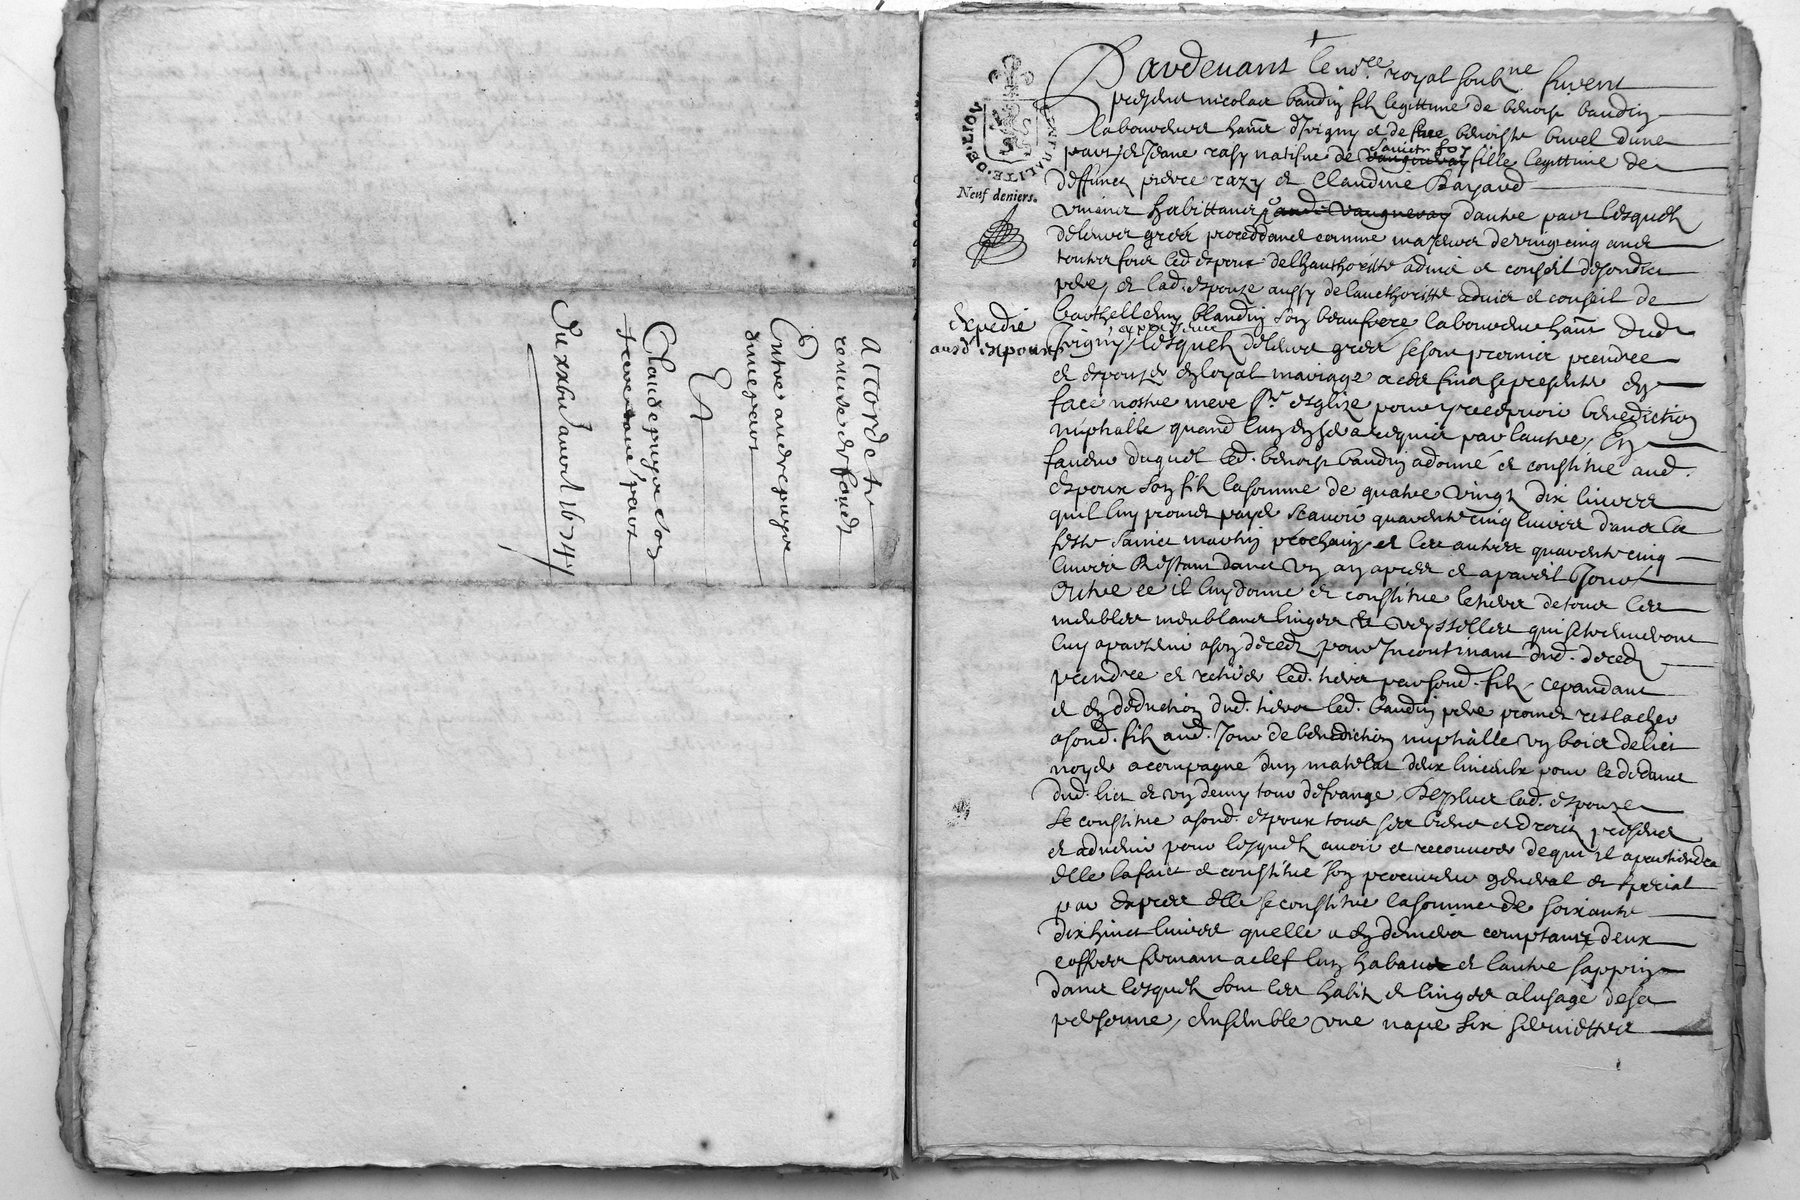 accord et
remise de fondz
Entre andre pupe
dune part
Et
Claude pupe son
frere dautre part
Du xxbiie avril 1674
GENERALITE DE LION
Neuf deniers.
Expedié
ausd. espoux
Pardevant le nore. royal soubne. furent
presens nicolas baudin filz legittime de benoist baudin
laboureur hant. divigny et de feue benoiste buvel dune
part, et Jeane razy natifve de fille legittime de
deffunct pierre razy et Claudine Bayard
habittans dautre part lesquelz
de leurs grez proceddans comme majeurs de vingt cinq ans
toutes fois led. espoux de lhauthoritté advis et conseil de sondict
pere, et lad. espouze aussy de lauthoritté advis et conseil de
barthellemy blandin son beaufrere laboureur hant. dud.
Ivigny lesquelz de leurs grez se sont promis prendre
et espouzer en loyal mariage a ces fins se presenter en
face nostre mere Ste esglize pour y recepvoir benediction
nuptialle quand lun en sera requis par lautre, En
faveur duquel led. benoist baudin a donné et constitué aud.
espoux son filz la somme de quatre vingt dix livres
quil luy promet payer scavoir quarente cinq livres dans la
feste sainct martin prochain, et les autres quarente cinq
livres restant dans un an apres et a pareil Jour
Outre ce il luy donne et constitue le tiers de tous les
meubles meublans linges et veysselles qui se treuveront
luy apartenir a son deced pour Incontinant dud. deced
prendre et retirer led. tiers par sond. filz, cepandant
et en deduction dud. tiers led. baudin pere promet reslacher
a sond. filz aud. Jour de benediction nuptialle un bois de lict
noyer acompagné dun mattelat deux linceulx pour le dedans
dud. lict et un demy tour de frange, De plus lad. espouze
se constitue a sond. espoux tous ses biens et droictz presens
et advenir pour lesquelz avoir et recouvrer de qui il apartiendra
elle la faict et constitué son procureur general et special
par expres elle se constitue la somme de soixante
dix huict livres quelle a en deniers comptans deux
coffres fermans a clef lun et lautre sappin
dans lesquelz sont les habitz et linges a lusage de sa
personne, ensemble une nape six serviettes